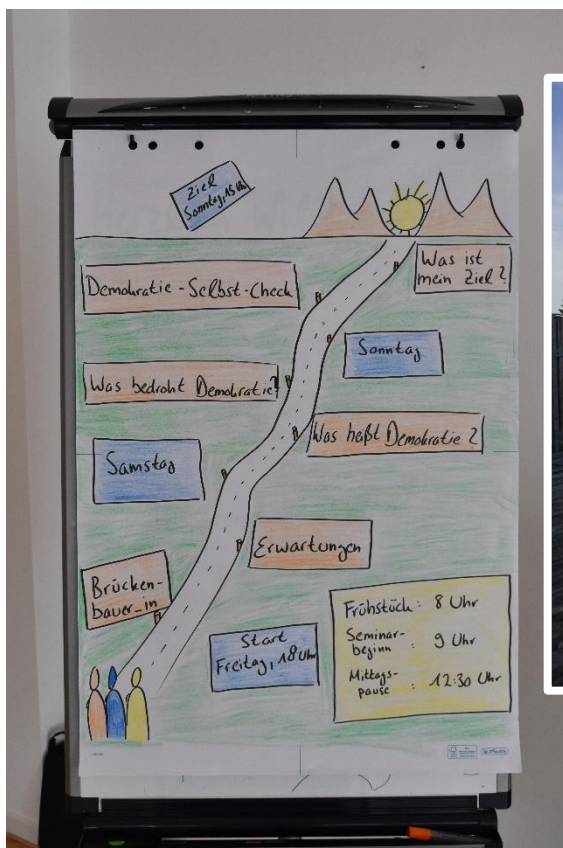 Ziel
Sonntag, 15 Uhr
Was ist
mein Ziel?
Demokratie-Selbst-Check
Sonntag
Was bedroht Demokratie?
Was heißt Demokratie?
Samstag
Erwartungen
Brücken-
bauer_in
Start
Freitag, 18 Uhr
Frühstück : 8 Uhr
Seminar-
beginn : 9 Uhr
Mittags-
pause : 12:30 Uhr